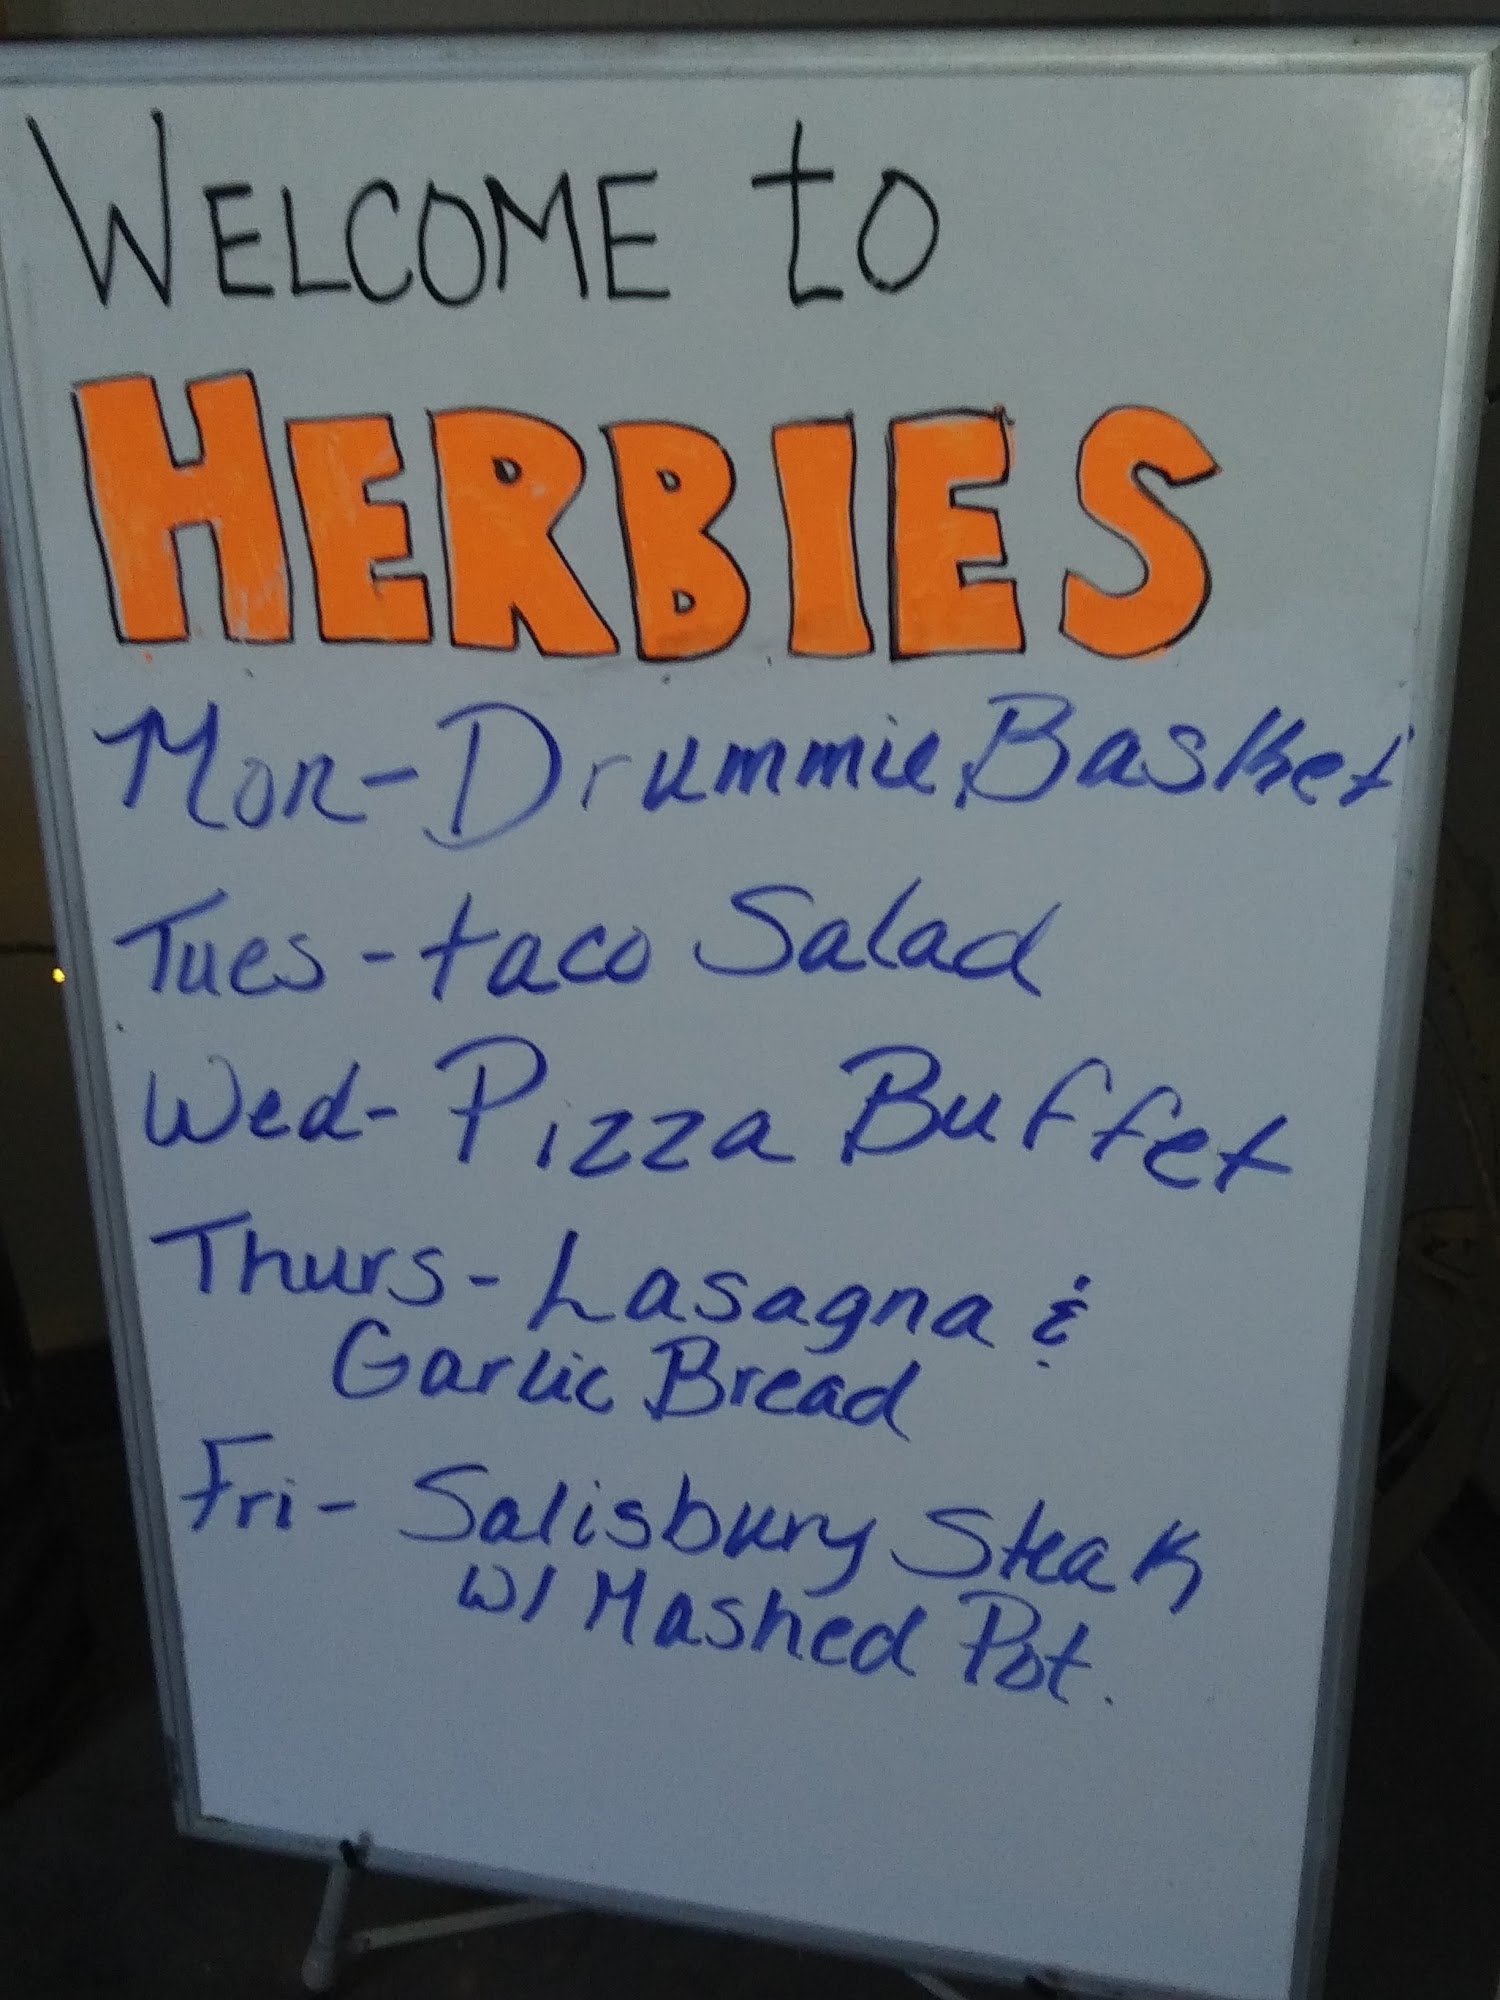 WELCOME to
HERBIES
Mon- Drummie Basket
Tues - taco Salad
Wed- Pizza Buffet
Thurs- Lasagna &
Garlic Bread
Fri- Salisbury Steak
w/ Mashed Pot.